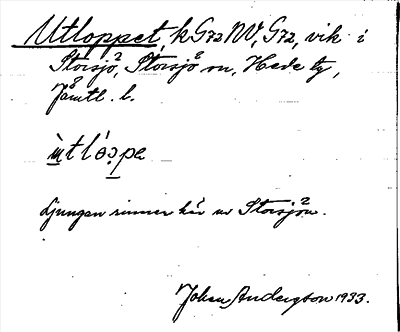 Utloppet, k G72 NV, G72, vik i
Storsjö, Storsjö sn, Hede tg,
Jämtl. l.
ùtlóppe
Ljungan rinner här ur Storsjön.
Johan Anderzson 1933.